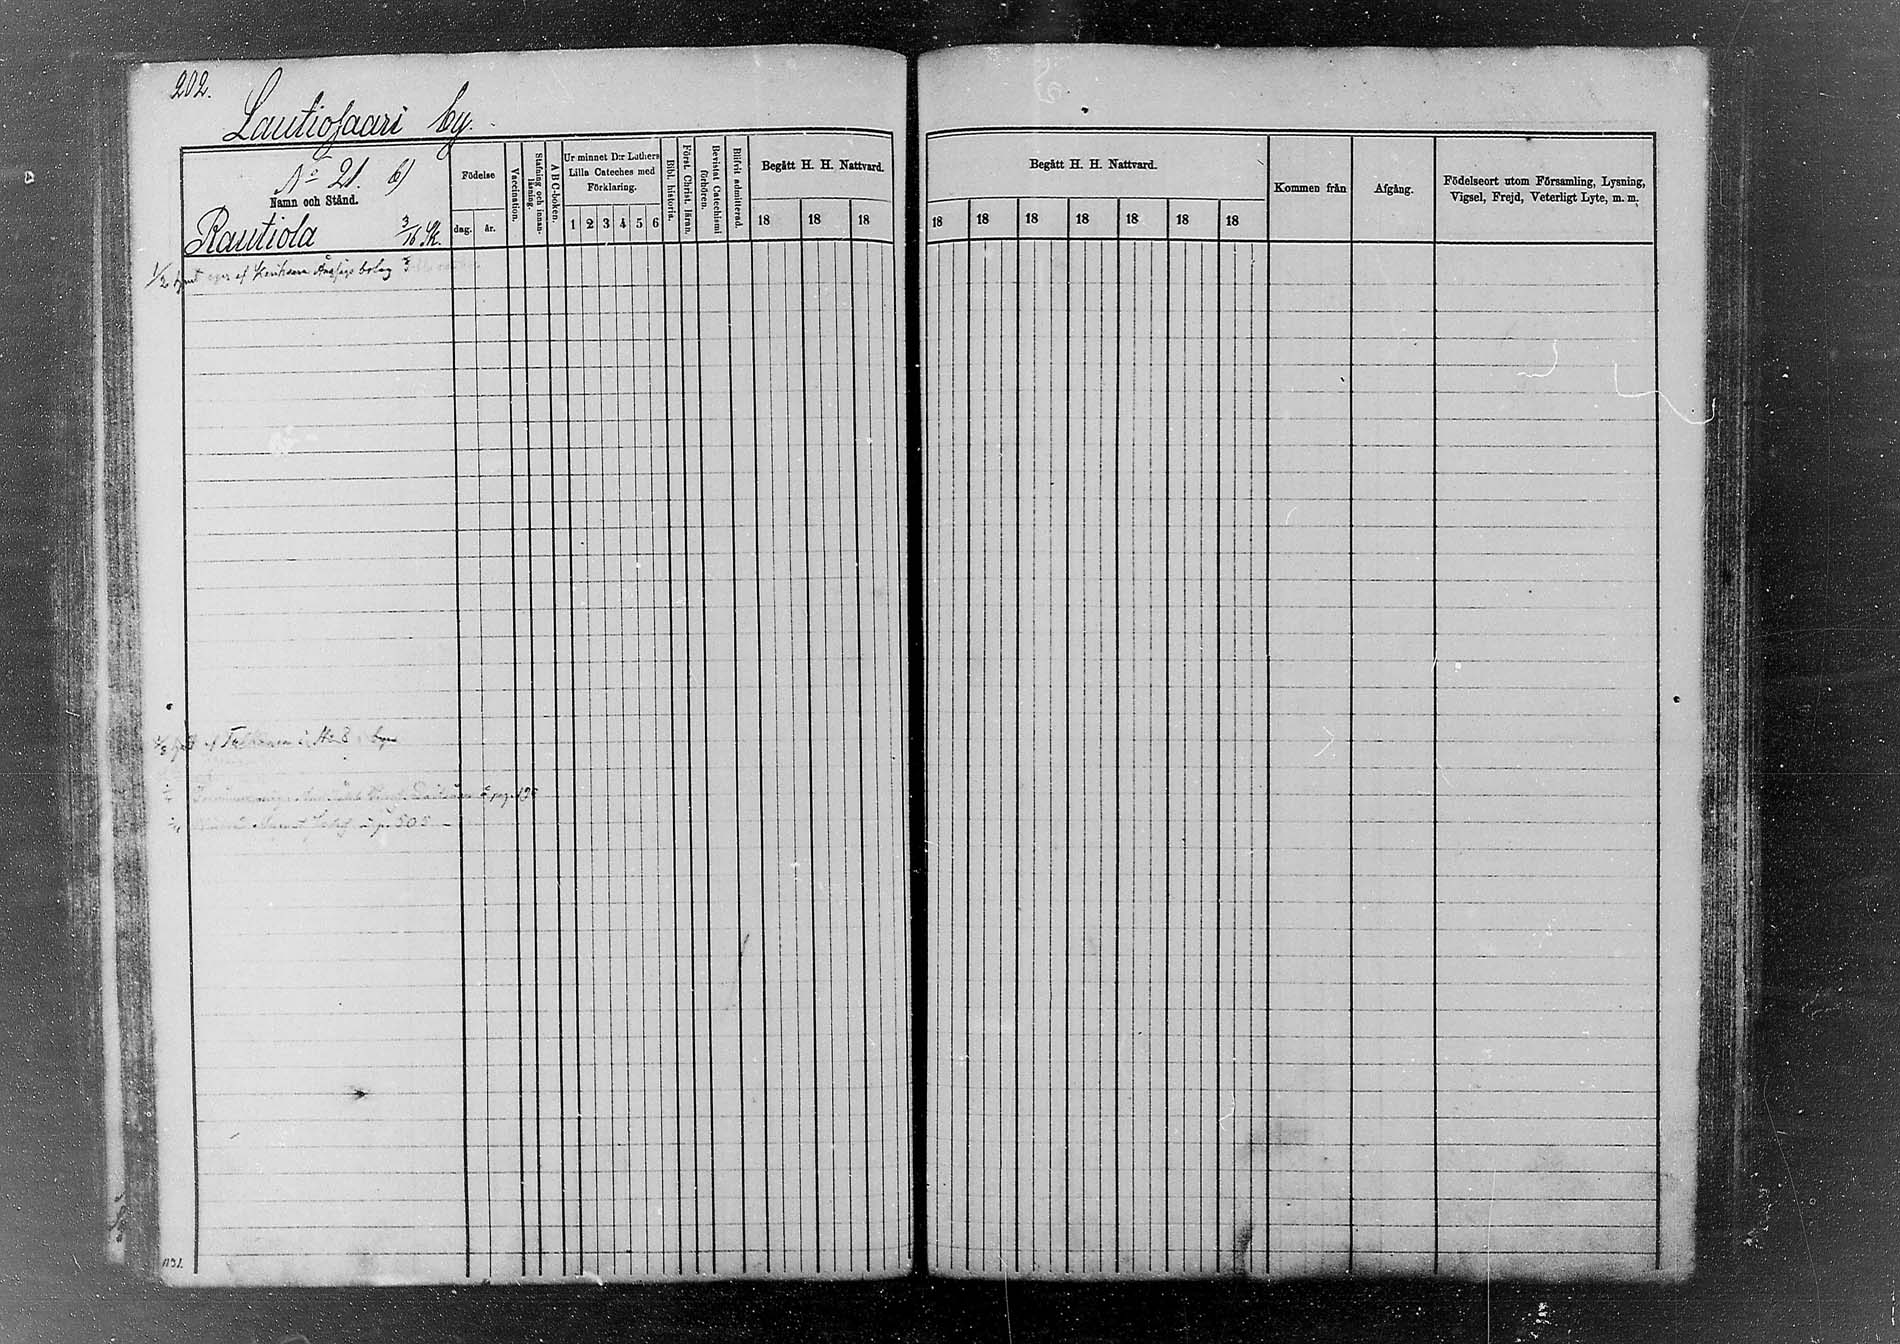 202.
Lautiosaari by.
No 21. b)
Namn och Stånd.
Rautiola 3/16 Mt.
Födelse
dag. år.
Vaccination.
Stafning och innan-läsning.
A B C-boken.
Ur minnet D:r Luthers
Lilla Cateches med
Förklaring.
1 2 3 4 5 6
Bibl. historia.
Först. Christ. läran.
Bevistat Catechismi förhören.
Blifvit admitterad.
Begått H. H. Nattvard.
18 18 18
1/2 af bolag
af No 8
pag. 195
p. 505
Begått H. H. Nattvard.
18 18 18 18 18 18 18
Kommen från
Afgång.
Födelseort utom Församling, Lysning,
Vigsel, Frejd, Veterligt Lyte, m. m.